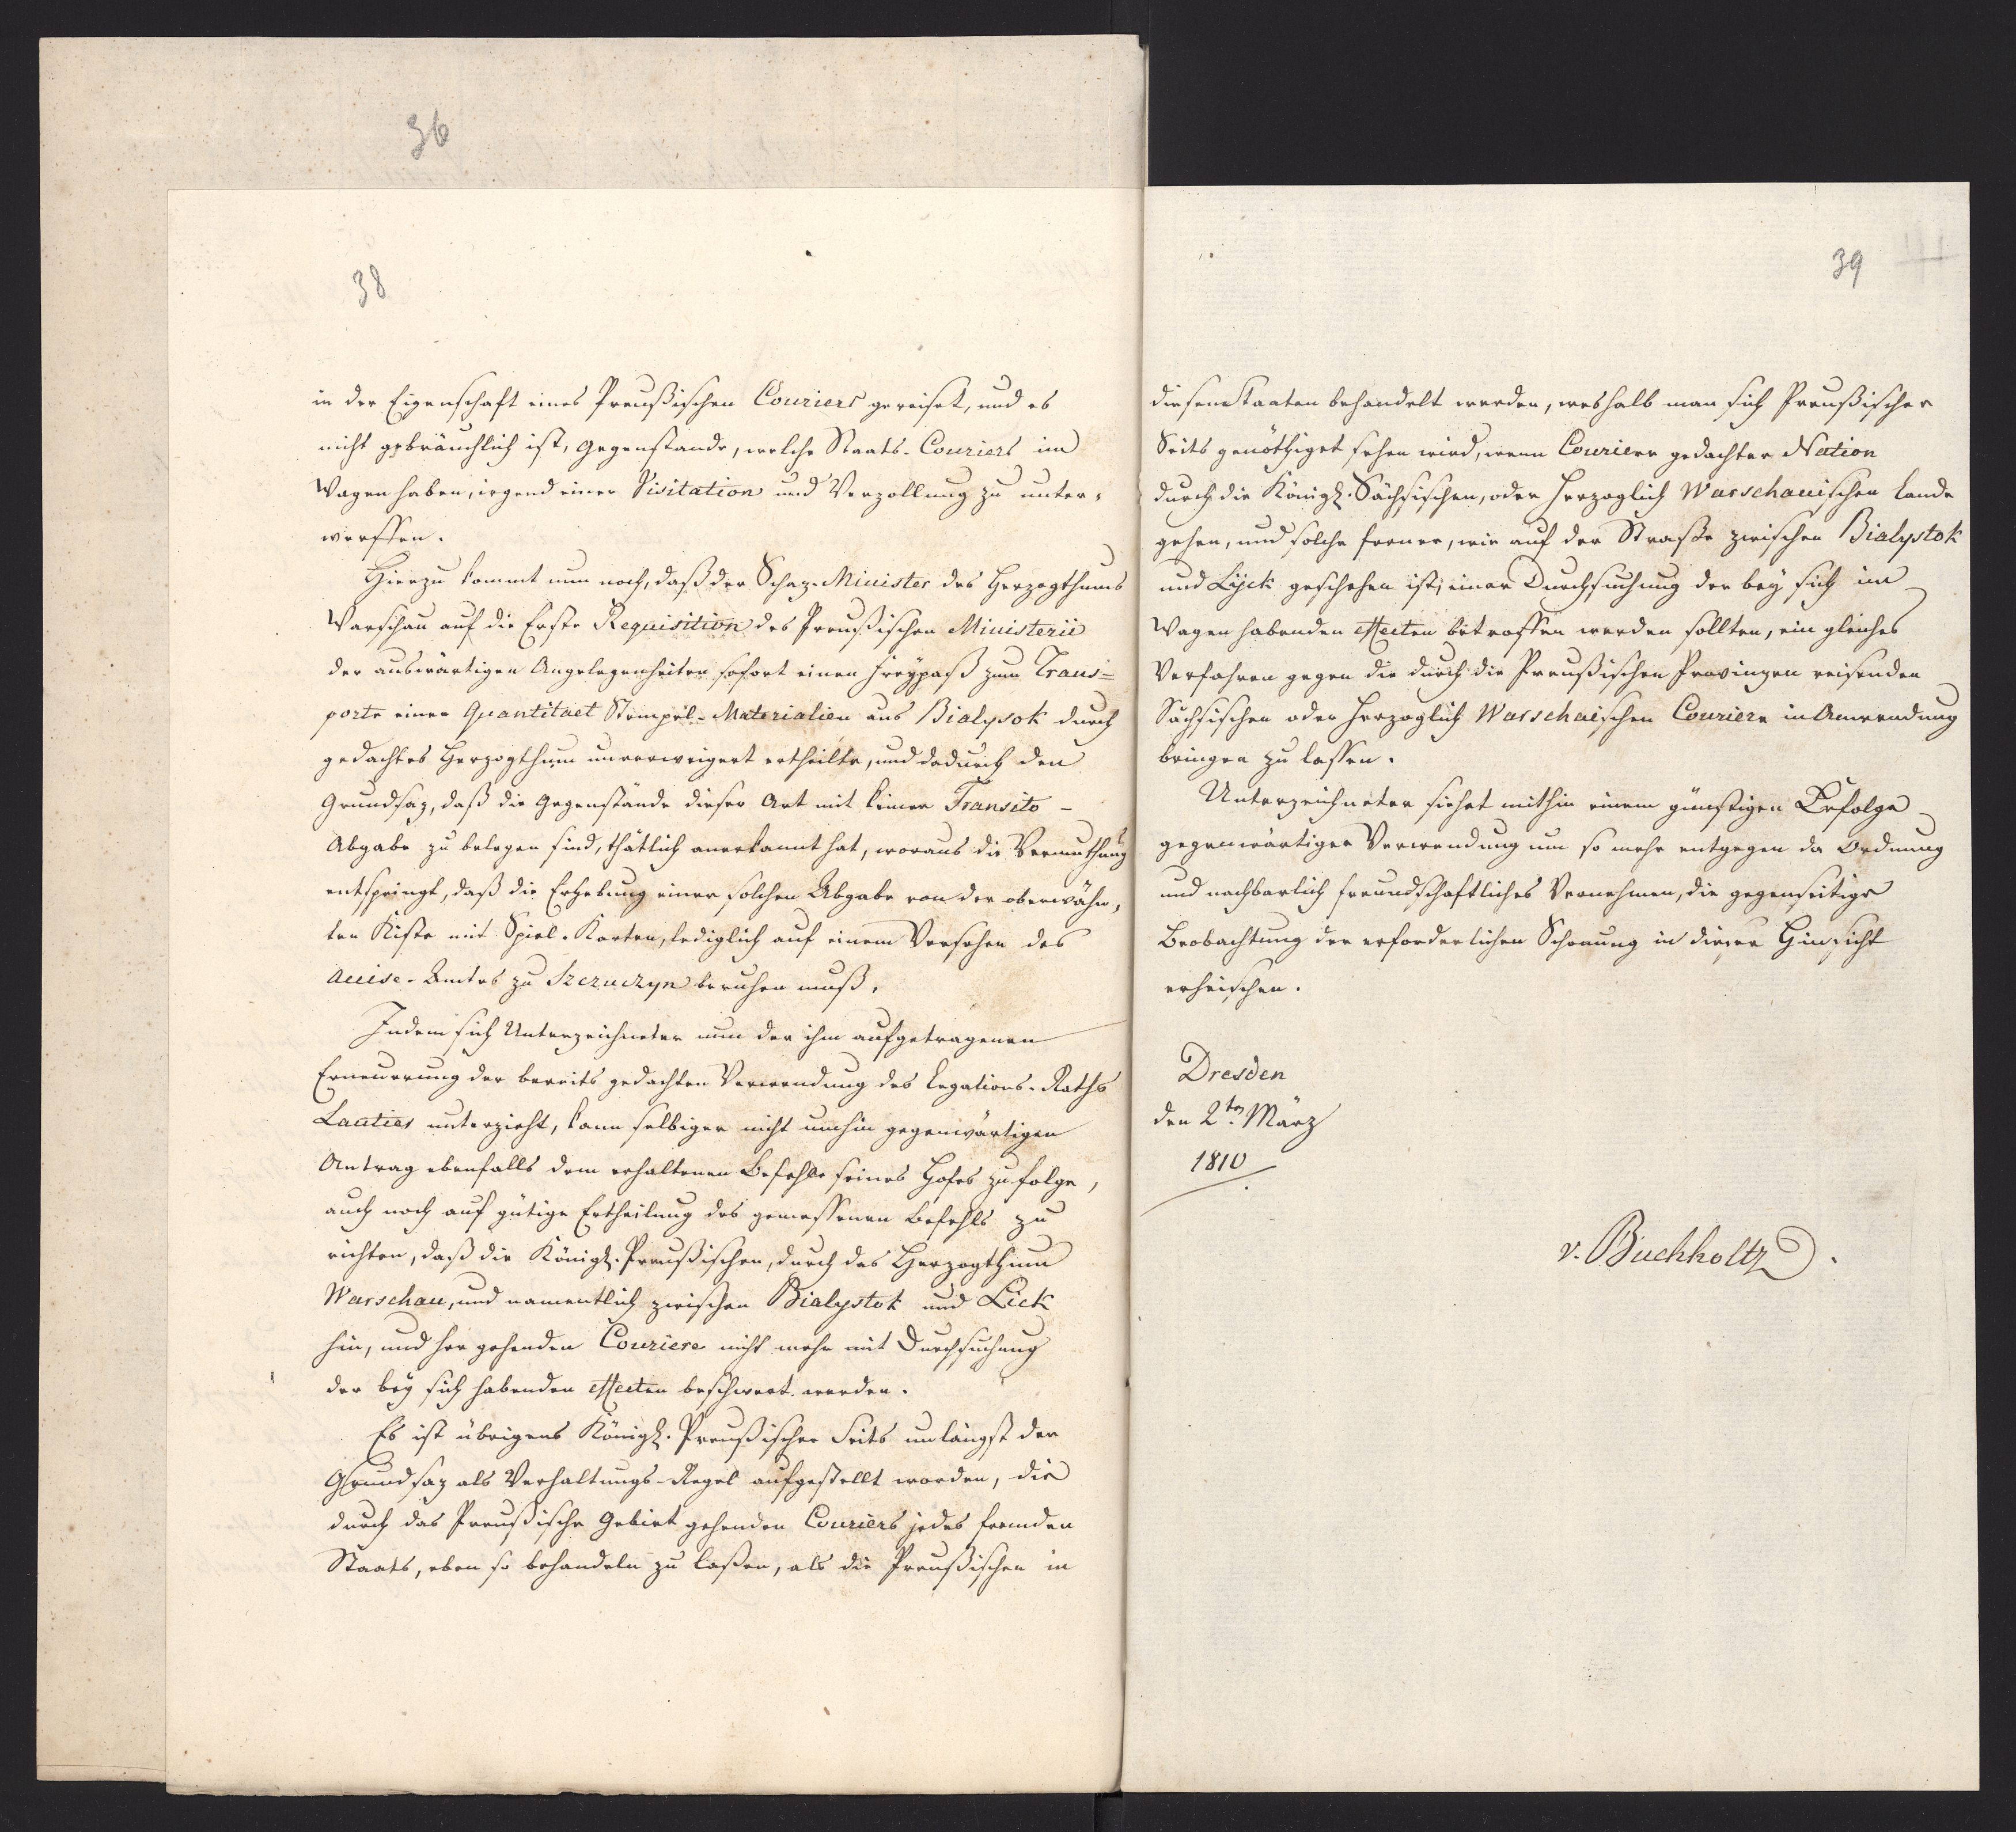 36
38
in der Eigenschaft eines Preußischen Couriers gereiset, und es
nicht gebräuchlich ist, Gegenstände, welche Staats-Couriers im
Wagen haben, irgend einer Visitation und Verzollung zu unter-
werffen.
Hierzu kommt nun noch, daß der Schaz-Minister des Herzogthums
Warschau auf die Erste Requisition des Preußischen Ministerii
der auswärtigen Angelegenheiten sofort einen Freypaß zum Trans-
porte einer Quantitaet Stempel-Materialien aus Bialysok durch
gedachtes Herzogthum unverweigert ertheilte, und dadurch den
Grundsaz, daß die Gegenstände dieser Art mit keiner Transito-
Abgabe zu belegen sind, thätlich anerkannt hat, woraus die Vermuthung
entspringt, daß die Erhebung einer solchen Abgabe von der oberwähn,
ten Kiste mit Spiel-Karten, lediglich auf einem Versehen des
Accise-Amtes zu Szczuczyn beruhen muß.
Indem sich Unterzeichneter nun der ihm aufgetragenen
Erneuerung der bereits gedachten Verwendung des Legations-Raths
Lautier unterzieht, kann selbiger nicht umhin gegenwärtigen
Antrag ebenfalls dem erhaltenen Befehle seines Hofes zufolge,
auch noch auf gütige Ertheilung des gemessenen Befehls zu
richten, daß die Königl. Preußischen, durch das Herzogthum
Warschau, und namentlich zwischen Bialystok und Lick
hin, und her gehenden Couriere nicht mehr mit Durchsuchung
der bey sich habenden Effecten beschwert werden.
Es ist übrigens Königl. Preußischer Seits unlängst der
Grundsaz als Verhaltungs-Regel aufgestellt worden, die
durch das Preußische Gebiet gehenden Couriers jedes fremden
Staats, eben so behandeln zu laßen, als die Preußischen in
39
diesen Staaten behandelt werden, weshalb man sich Preußischer
Seits genöthiget sehen wird, wenn Couriere gedachter Nation
durch die Königl. Sächsischen, oder Herzoglich Warschauischen Lande
gehen, und solche ferner, wie auf der Straße zwischen Bialystok
und Lyck geschehen ist, einer Durchsuchung der bey sich im
Wagen habenden Effecten betroffen werden sollten, ein gleiches
Verfahren gegen die durch die Preußischen Provinzen reisenden
Sächsischen oder Herzoglich Warschaischen Couriere in Anwendung
bringen zu lassen.
Unterzeichneter siehet mithin einem günstigen Erfolge
gegenwärtiger Verwendung um so mehr entgegen da Ordnung
und nachbarlich freundschaftliches Vernehmen, die gegenseitige
Beobachtung der erforderlichen Schonung in dieser Hinsicht
erheischen.
Dresden
den 2ten März
1810
v. Buchholtz.